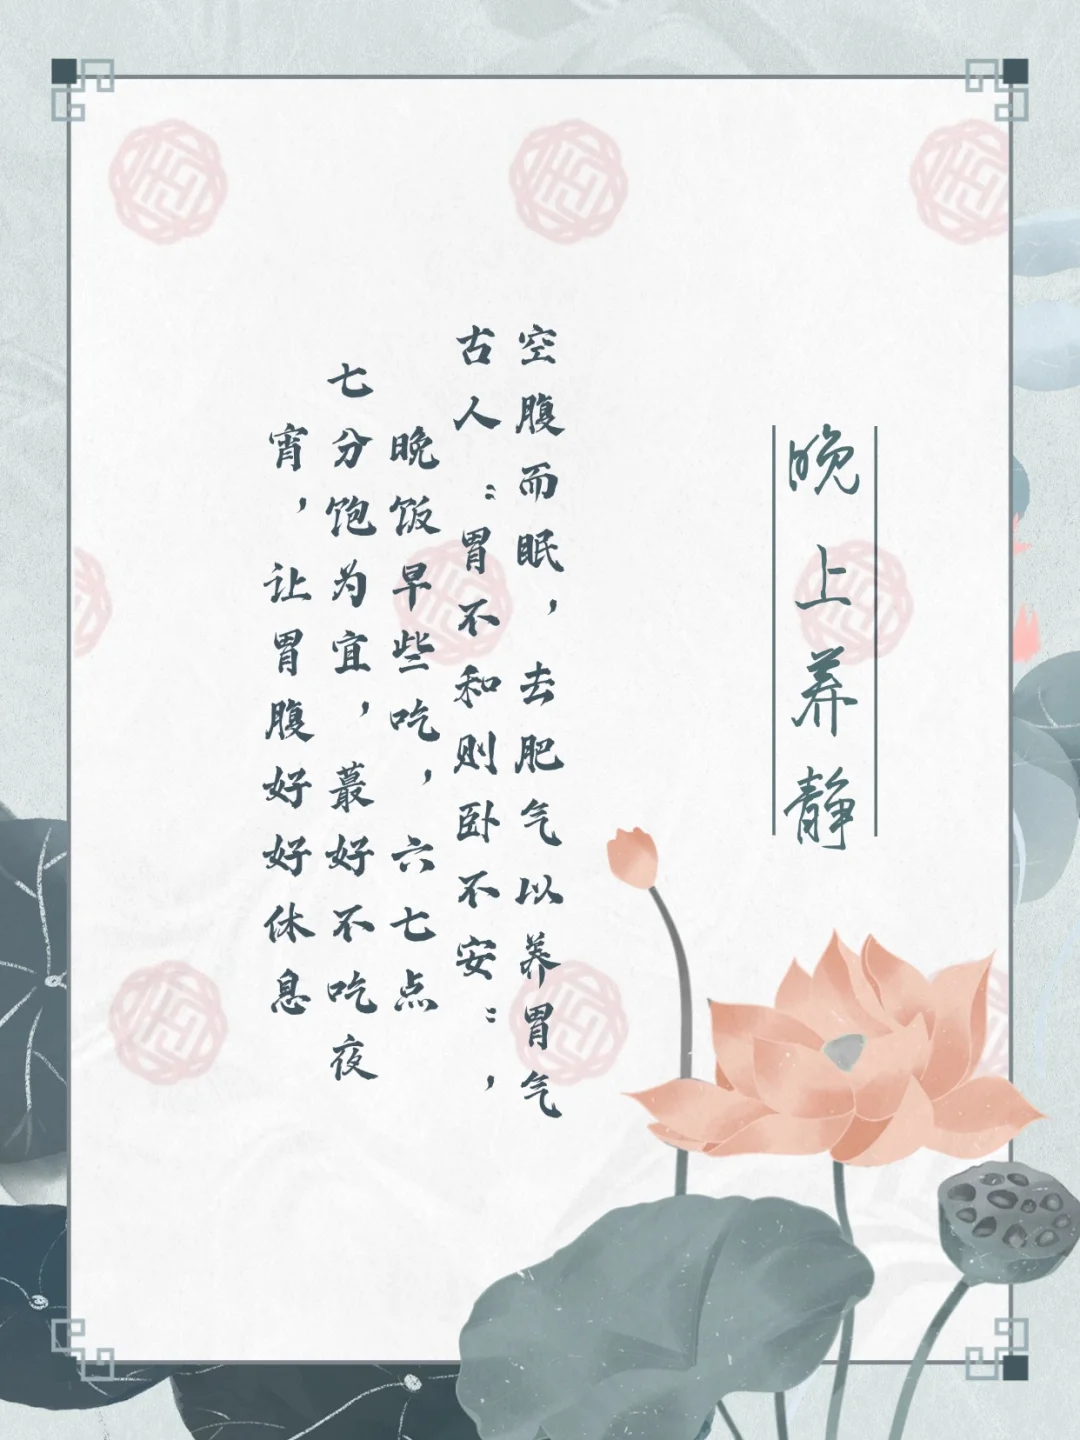 晚上养静
空腹而眠，去肥气以养胃气
古人：胃不和则卧不安：，
晚饭早些吃，六七点
七分饱为宜，蕞好不吃夜
宵，让胃腹好好休息